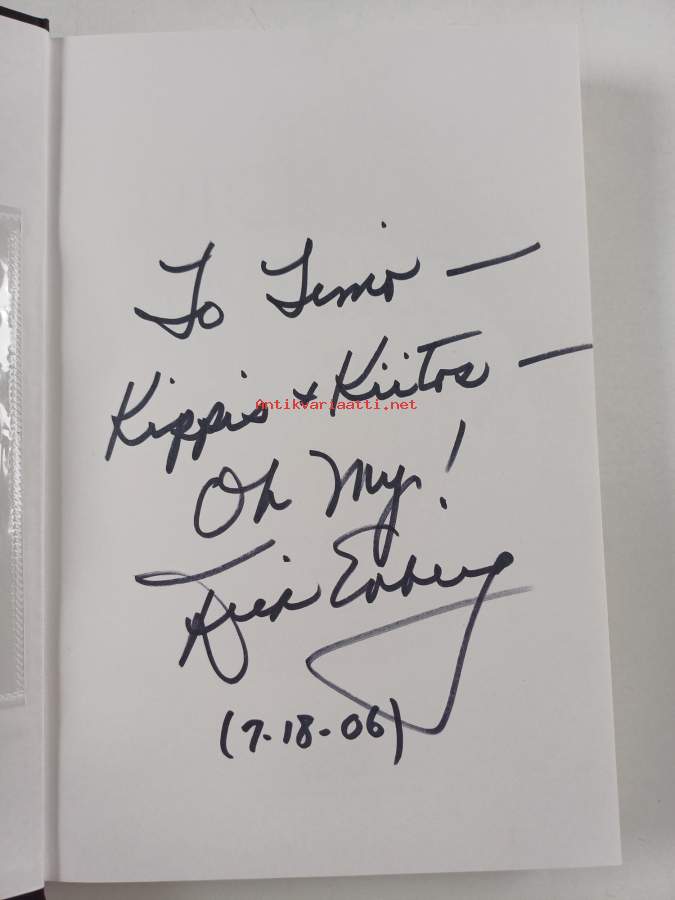 To Timo —
Kippis + Kiitos —
Antikvariaatti.net
Oh My!
Dick Enberg
(7-18-06)